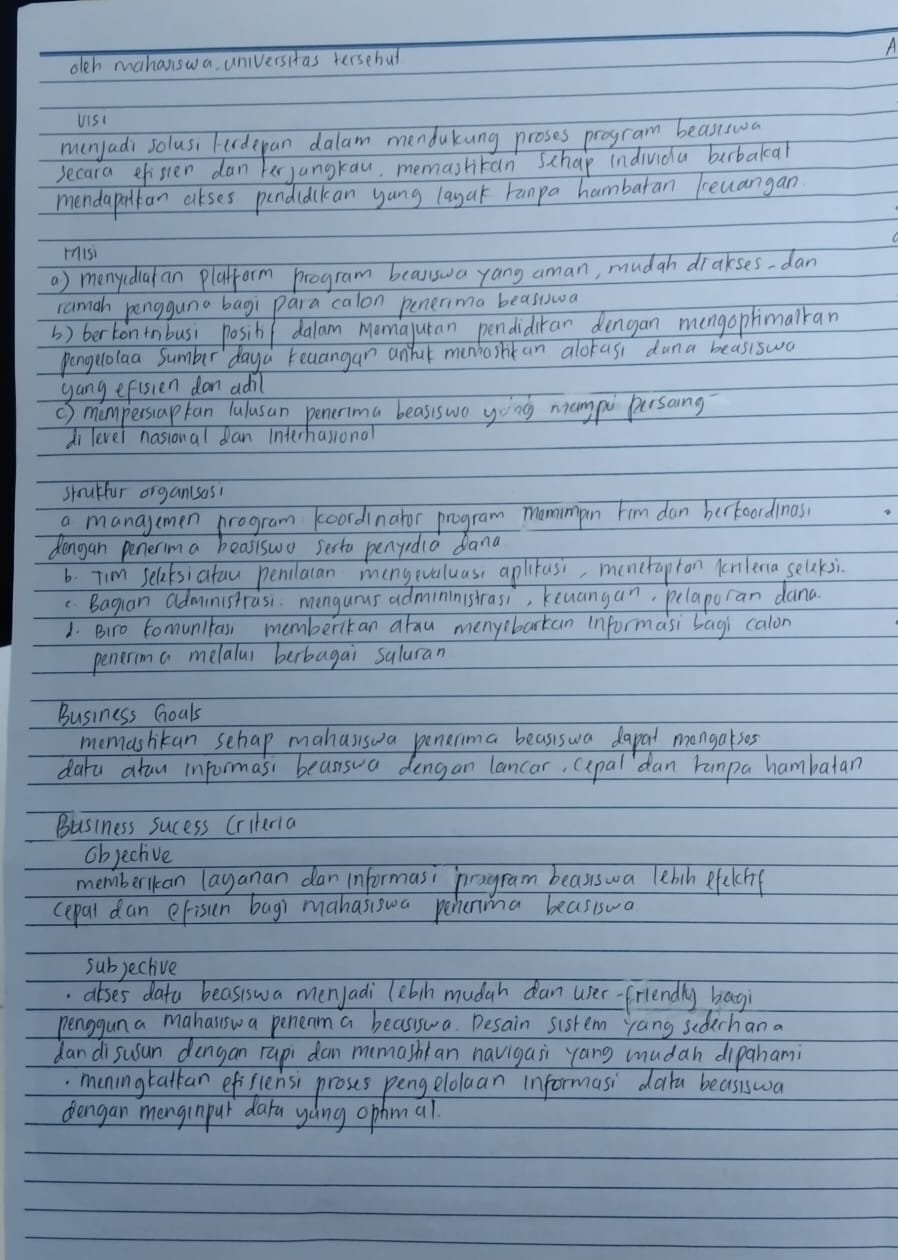 A
oleh mahasiswa universitas tersebut
Visi
menjadi solusi terdepan dalam mendukung proses program beasiswa
secara efisien dan terjangkau, memastikan setiap individu berbakat
mendapatkan akses pendidikan yang layak tanpa hambatan keuangan.
Misi
a) menyediakan platform program beasiswa yang aman, mudah diakses, dan
ramah pengguna bagi para calon penerima beasiswa
b) berkontribusi positif dalam memajukan pendidikan dengan mengoptimalkan
pengelolaa sumber daya keuangan untuk memastikan alokasi dana beasiswa
yang efisien dan adil
c) mempersiapkan lulusan penerima beasiswa yang mampu persaing
di level nasional dan internasional
struktur organisasi
a manajemen program koordinator program memimpin tim dan berkoordinasi
dengan penerima beasiswa serta penyedia dana
b. Tim seleksi atau penilaian mengevaluasi aplikasi, menetapkan kriteria seleksi.
c. Bagian administrasi. mengurus admininistrasi, keuangan, pelaporan dana.
d. Biro komunikasi memberikan atau menyebarkan informasi bagi calon
penerima melalui berbagai saluran
Business Goals
memastikan setiap mahasiswa penerima beasiswa dapat mengakses
data atau informasi beasiswa dengan lancar, cepat dan tanpa hambatan
Business sucess Criteria
Objective
memberikan layanan dan informasi program beasiswa lebih efektif
cepat dan efisien bagi mahasiswa penerima beasiswa
subjective
• akses data beasiswa menjadi lebih mudah dan user-friendly bagi
pengguna mahasiswa penerima beasiswa. Desain sistem yang sederhana
dan disusun dengan rapi dan memastikan navigasi yang mudah dipahami
• meningkatkan efisiensi proses pengelolaan informasi data beasiswa
dengan menginput data yang optimal.